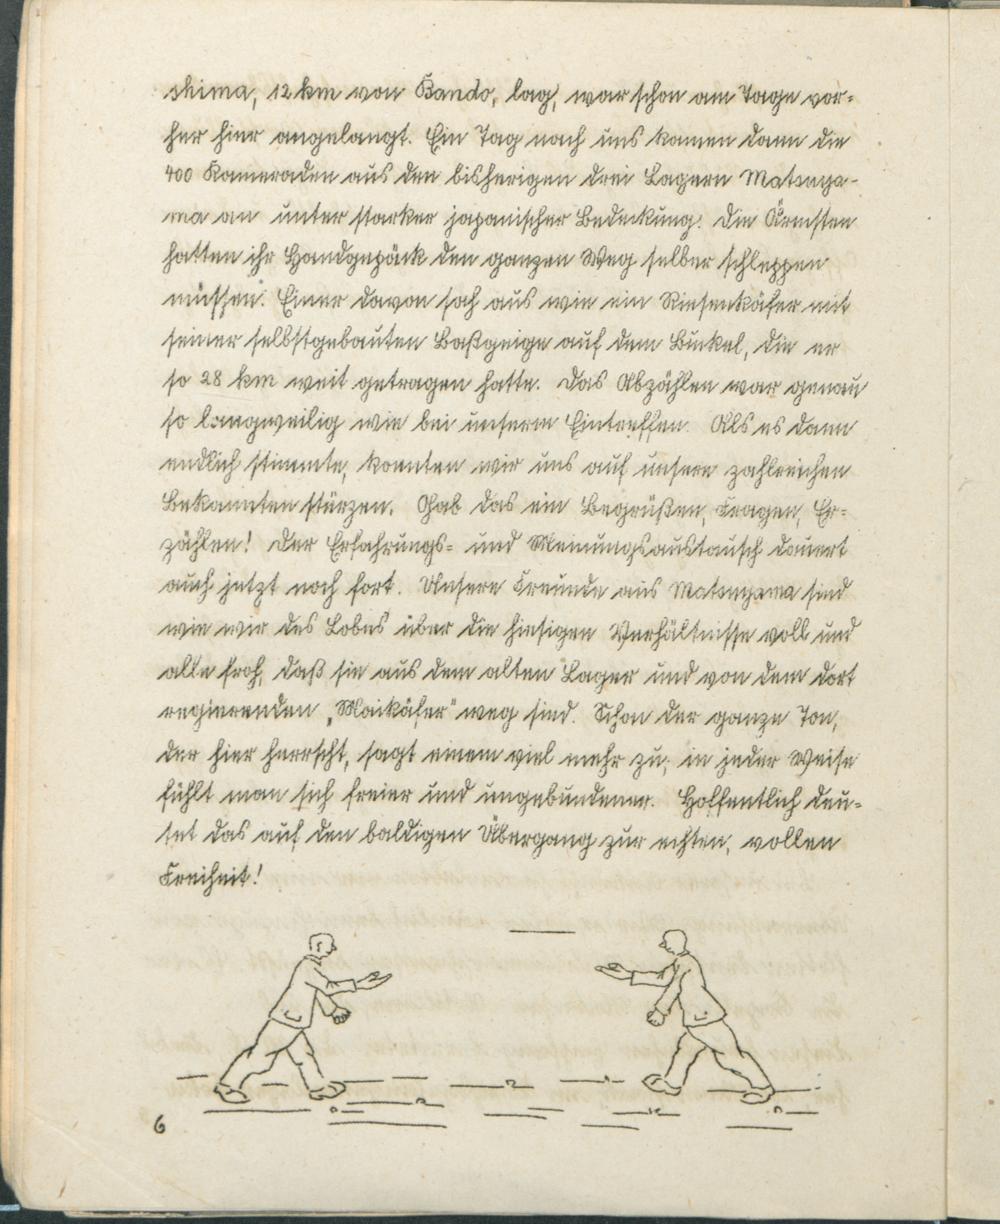 shima, 12 km von Bando, lag, war schon am Tage vor-
her hier angelangt. Ein Tag nach uns kamen dann die
400 Kameraden aus den bisherigen drei Lagern Matsuya-
ma an unter starker japanischer Bedeckung. Die Ärmsten
hatten ihr Handgepäck den ganzen Weg selber schleppen
müssen. Einer davon sah aus wie ein Riesenkäfer mit
seiner selbstgebauten Baßgeige auf dem Buckel, die er
so 28 km weit getragen hatte. Das Abzählen war genau
so langweilig wie bei unserm Eintreffen. Als es dann
endlich stimmte, konnten wir uns auf unsere zahlreichen
Bekannten stürzen. Gab das ein Begrüßen, Fragen, Er-
zählen! Der Erfahrungs- und Meinungsaustausch dauert
auch jetzt noch fort. Unsere Freunde aus Matsuyama sind
wie wir des Lobes über die hiesigen Verhältnisse voll und
alle froh, daß sie aus dem alten Lager und von dem dort
regierenden „Maikäfer" weg sind. Schon der ganze Ton,
der hier herrscht, sagt einem viel mehr zu; in jeder Weise
fühlt man sich freier und ungebundener. Hoffentlich deu-
tet das auf den baldigen Übergang zur echten, vollen
Freiheit!
6